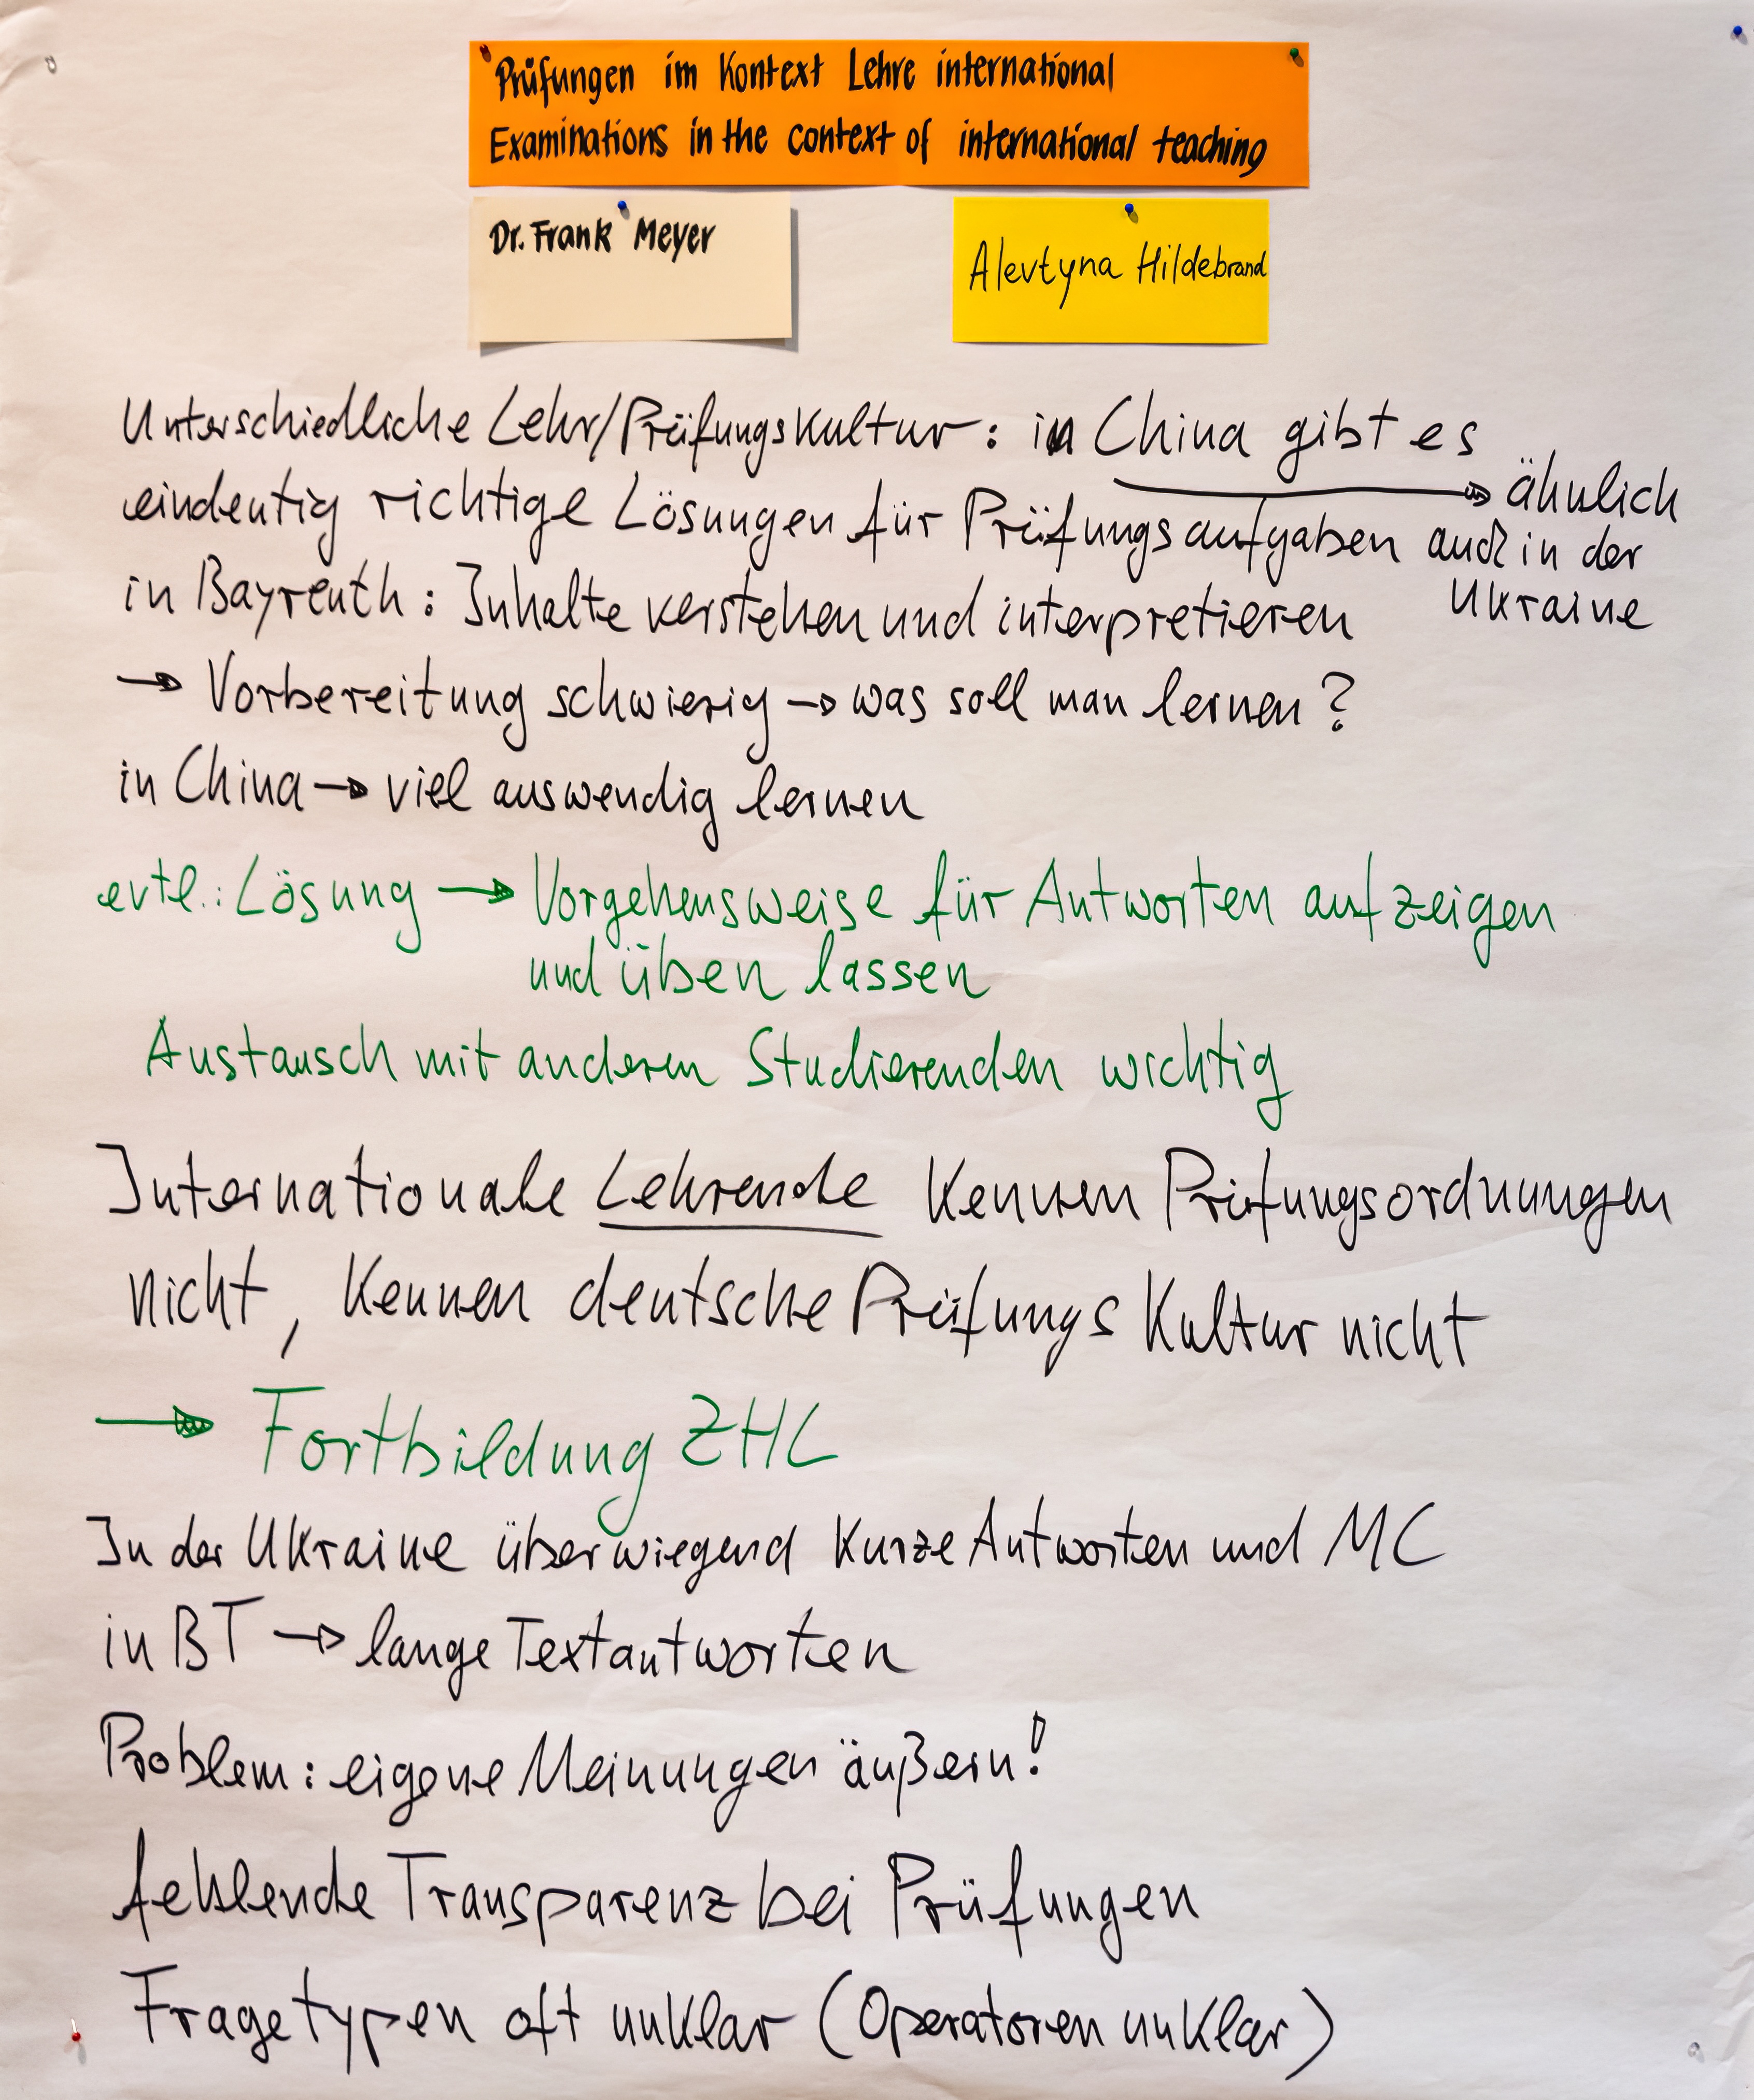 Prüfungen im Kontext Lehre international
Examinations in the context of international teaching
Dr. Frank Meyer
Alevtyna Hildebrand
Unterschiedliche Lehr/Prüfungskultur: in China gibt es
eindeutig richtige Lösungen für Prüfungsaufgaben
→ ähnlich
auch in der
Ukraine
in Bayreuth: Inhalte verstehen und interpretieren
→ Vorbereitung schwierig → was soll man lernen?
in China → viel auswendig lernen
evtl.: Lösung → Vorgehensweise für Antworten aufzeigen
und üben lassen
Austausch mit anderen Studierenden wichtig
Internationale Lehrende kennen Prüfungsordnungen
nicht, kennen deutsche Prüfungskultur nicht
→ Fortbildung ZHL
In der Ukraine überwiegend kurze Antworten und MC
in BT → lange Textantworten
Problem: eigene Meinungen äußern!
fehlende Transparenz bei Prüfungen
Fragetypen oft unklar (Operatoren unklar)